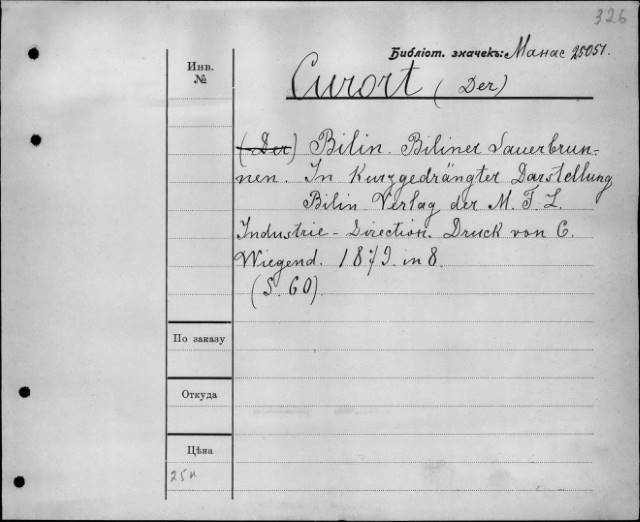 326
Библіот. значекъ: Манас 25051.
Инв.
№
Curort (Der)
(Der) Bilin. Biliner Sauerbrun-
nen. In Kurzgedrängter Darstellung
Bilin. Verlag der M. F. L.
Industrie-Direction. Druck von C.
Wiegend. 1879. in 8.
(S. 60).
По заказу
Откуда
Цѣна
25к